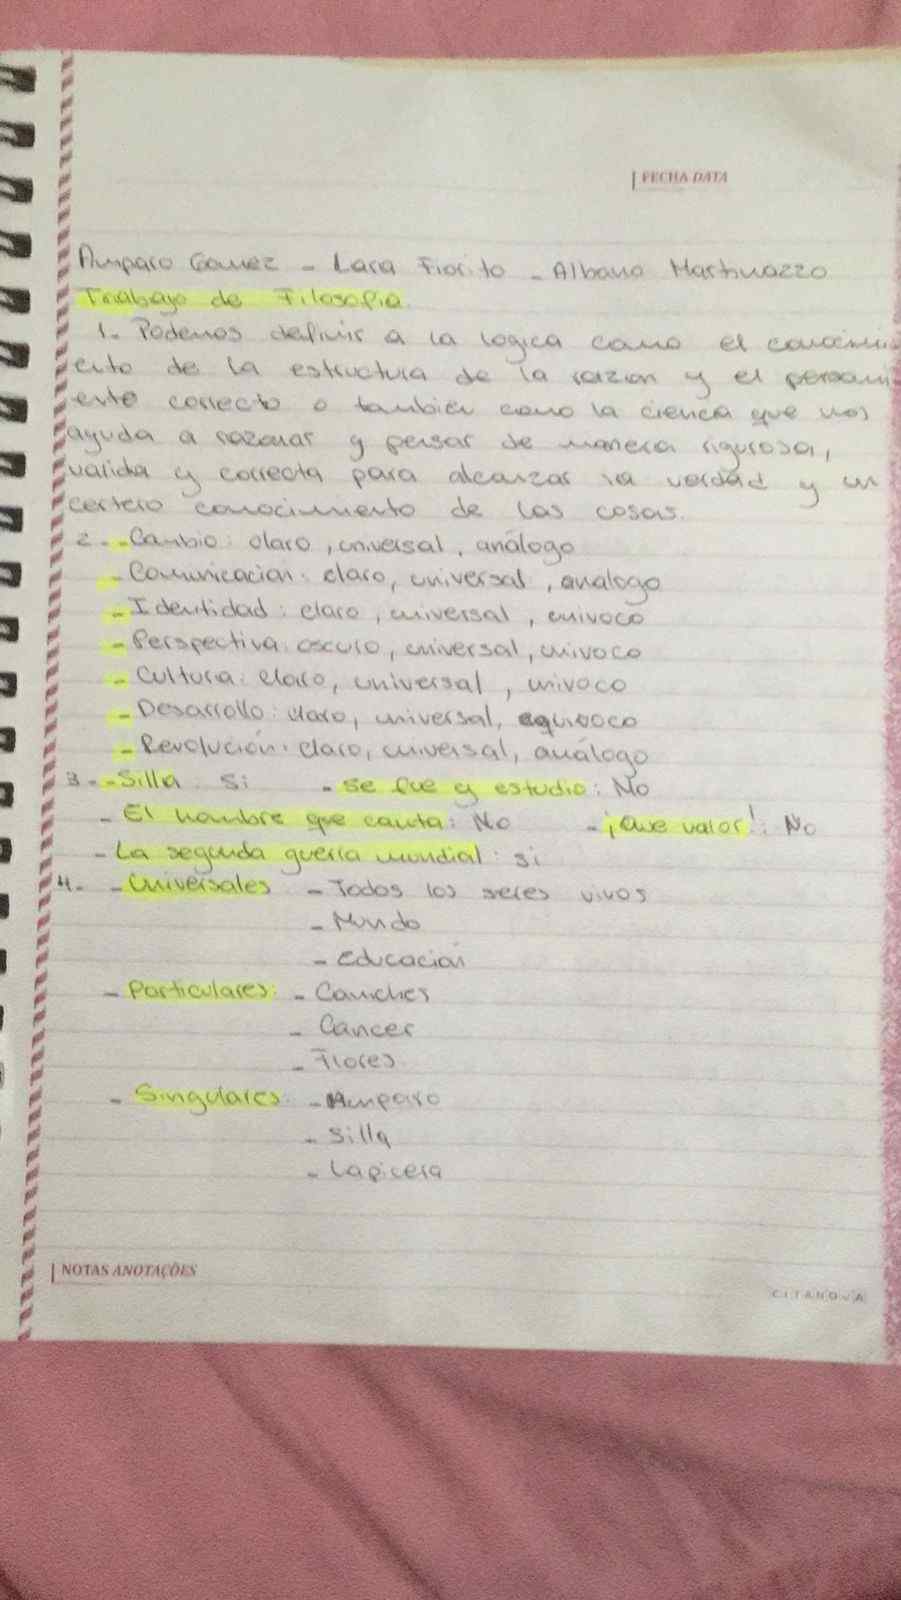 FECHA DATA
Amparo Gomez - Lara Fiorito - Albano Martinazzo
Trabajo de Filosofia.
1. Podemos definir a la logica como el conocimi
ento de la estructura de la razon y el pensami
ento correcto o también como la ciencia que nos
ayuda a razonar y pensar de manera rigurosa,
valida y correcta para alcanzar la verdad y un
certero conocimiento de las cosas.
2. - Cambio: claro, universal, análogo
- Comunicacion: claro, universal, análogo
- Identidad: claro, universal, univoco
- Perspectiva: oscuro, universal, univoco
- Cultura: claro, universal, univoco
- Desarrollo: claro, universal, equivoco
- Revolución: claro, universal, análogo
3. - Silla: Si - se fue y estudio: No
- El hombre que canta: No - ¡Que valor!: No
- La segunda guerra mundial: si
4. - Universales - Todos los seres vivos
- Mundo
- Educación
- Particulares: - Caniches
- Cáncer
- Flores
- Singulares: - Amparo
- Silla
- Lapicera
NOTAS ANOTAÇÕES
CITANOVA